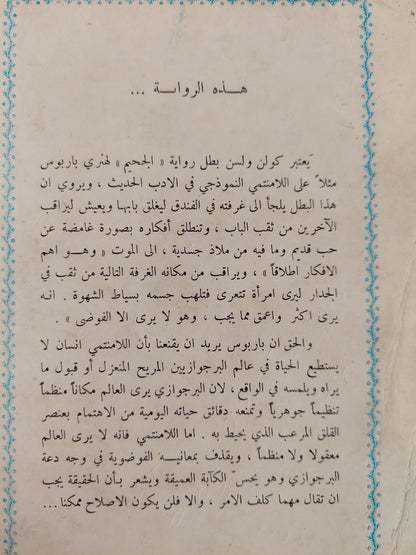 هـذه الروايـة ...
يَعتبر كولن ولسن بطل رواية « الجحيم » لهنري باربوس
مثلاً على اللامنتمي النموذجي في الادب الحديث ، ويروي ان
هذا البطل يلجأ الى غرفته في الفندق ليغلق بابها ويعيش ليراقب
الآخرين من ثقب الباب ، وتنطلق أفكاره بصورة غامضة عن
حب قديم وما فيه من ملاذ جسدية ، الى الموت « وهـو اهم
الافكار اطلاقاً » ، ويراقب من مكانه الغرفة التالية من ثقب في
الجدار ليرى امرأة تتعرى فتلهب جسمه بسياط الشهوة . انه
يرى اكثر واعمق مما يجب ، وهو لا يرى الا الفوضى » .
والحق ان باربوس يريد ان يقنعنا بأن اللامنتمي انسان لا
يستطيع الحياة في عالم البرجوازيين المريح المنعزل أو قبول ما
يراه ويلمسه في الواقع ، لان البرجوازي يرى العالم مكاناً منظماً
تنظيماً جوهرياً وتمنعه دقائق حياته اليومية من الاهتمام بعنصر
القلق المرعب الذي يحيط به . اما اللامنتمي فانه لا يرى العالم
معقولا ولا منظماً ، ويقذف بمعانيـه الفوضوية في وجه دعة
البرجوازي وهو يحسّ الكآبة العميقة ويشعر بـأن الحقيقة يجب
ان تقال مهما كلف الامر ، والا فلن يكون الاصلاح ممكنا ...